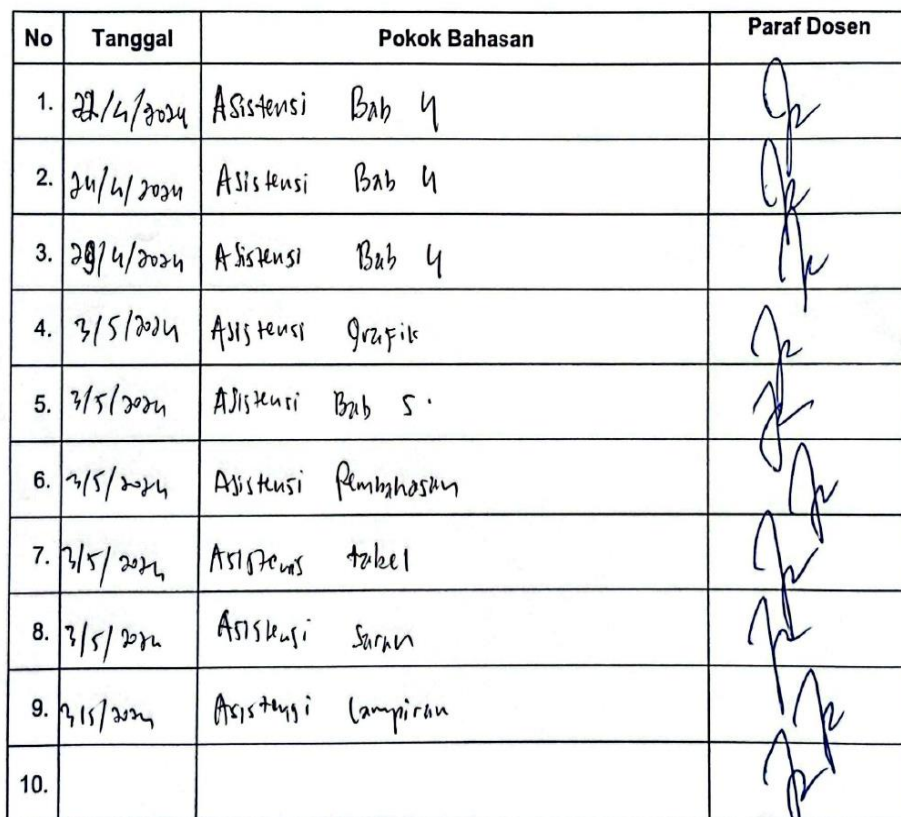 No Tanggal Pokok Bahasan Paraf Dosen
1. 22/4/2024 Asistensi Bab 4
2. 24/4/2024 Asistensi Bab 4
3. 29/4/2024 Asistensi Bab 4
4. 3/5/2024 Asistensi grafik
5. 3/5/2024 Asistensi Bab 5.
6. 3/5/2024 Asistensi Pembahasan
7. 3/5/2024 Asistensi tabel
8. 3/5/2024 Asistensi Saran
9. 3/5/2024 Asistensi Lampiran
10.